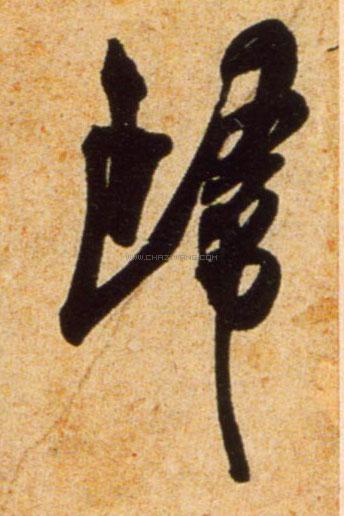 歸
WWW.CHAZIDIAN.COM